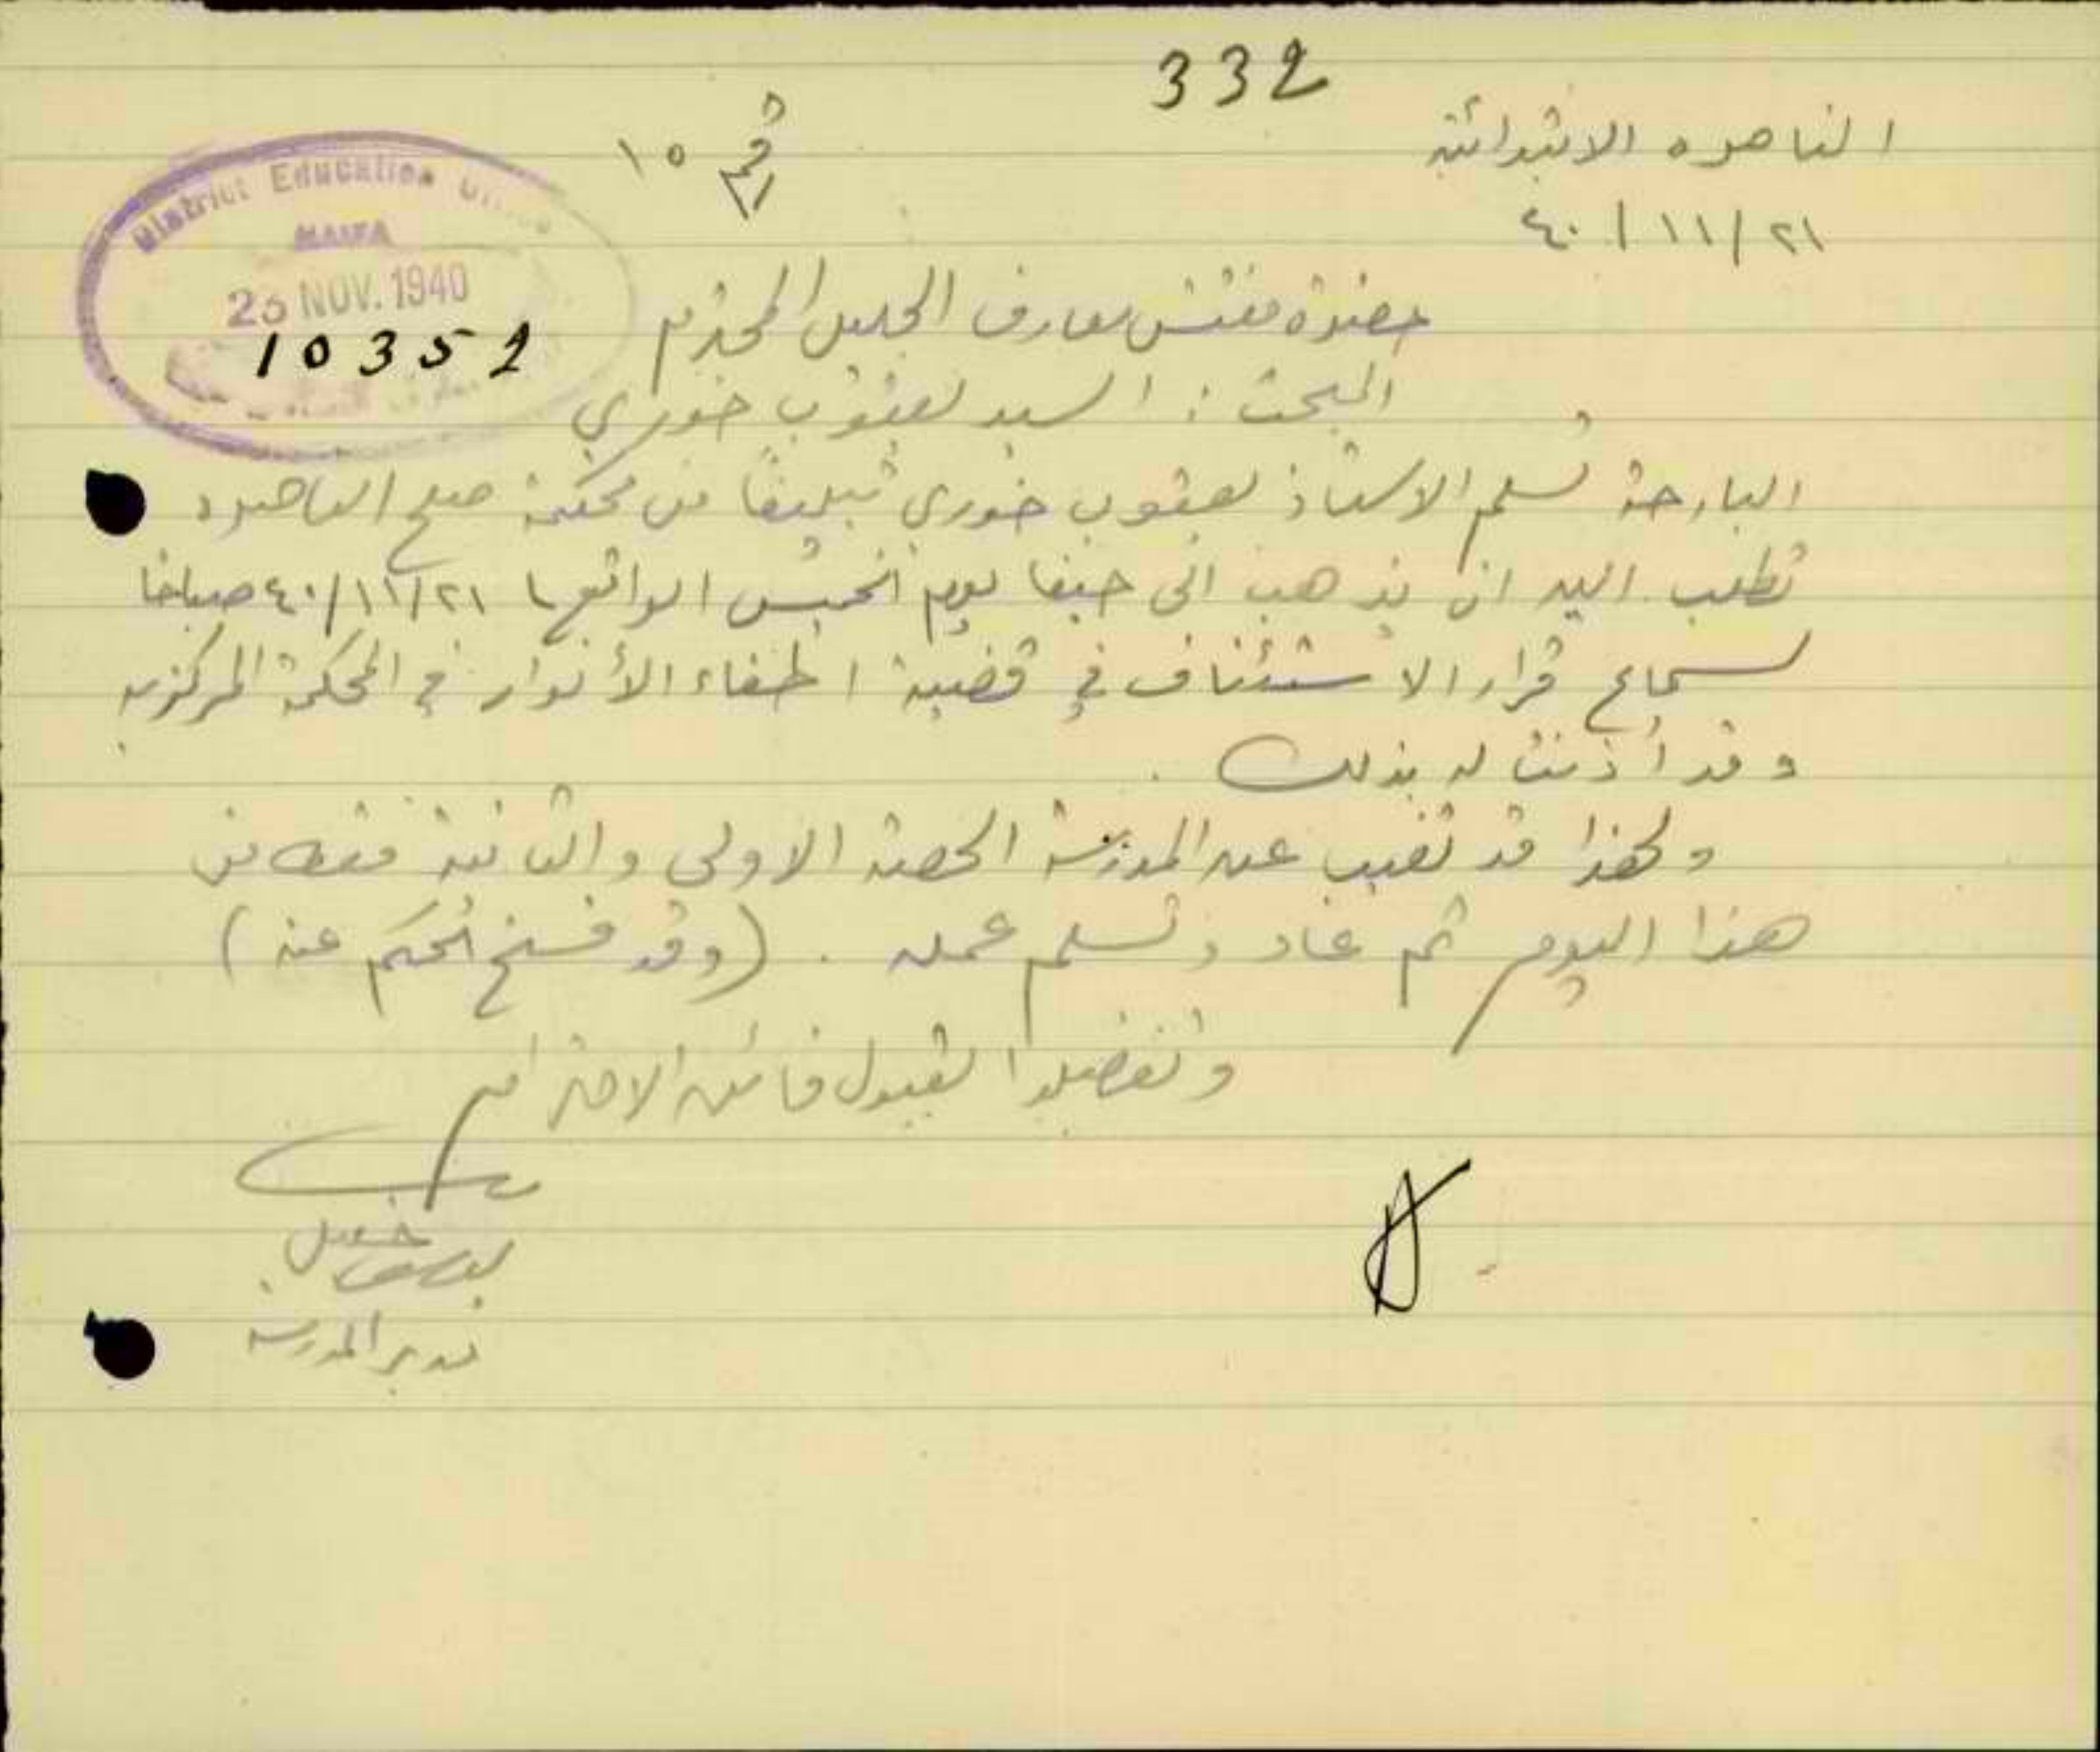 332
الناصره الابتدائية
رقم ١٥
٢١/١١/٤٠
District Education Office
HAIFA
NOV. 1940
10352
حضرة مفتش معارف الجليل المحترم
المبحث : السيد يعقوب خوري
البارحة تسلم الاستاذ يعقوب خوري تبليغاً من محكمة صلح الناصره
تطلب اليه ان يذهب الى حيفا يوم الخميس الواقع ٢١/١١/٤٠ صباحا
لسماع قرار الاستئناف في قضية اطفاء الأنوار في المحكمة المركزيه
وقد أذنت له بذلك .
ولهذا قد تغيب عن المدرسة الحصة الاولى والثانية فقط من
هذا اليوم ثم عاد وتسلم عمله . (وقد فسخ الحكم عنه)
وتفضلوا بقبول فائق الاحترام
يوسف خليل
مدير المدرسه